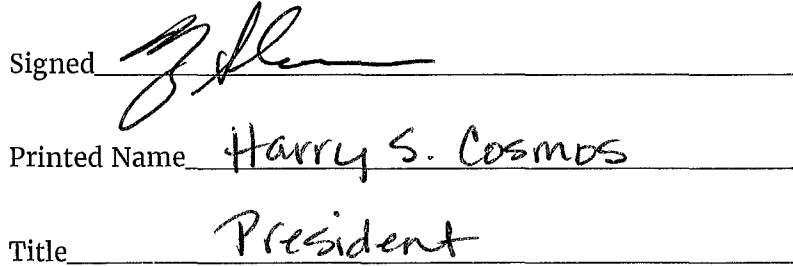 Signed
Printed Name Harry S. Cosmos
Title President